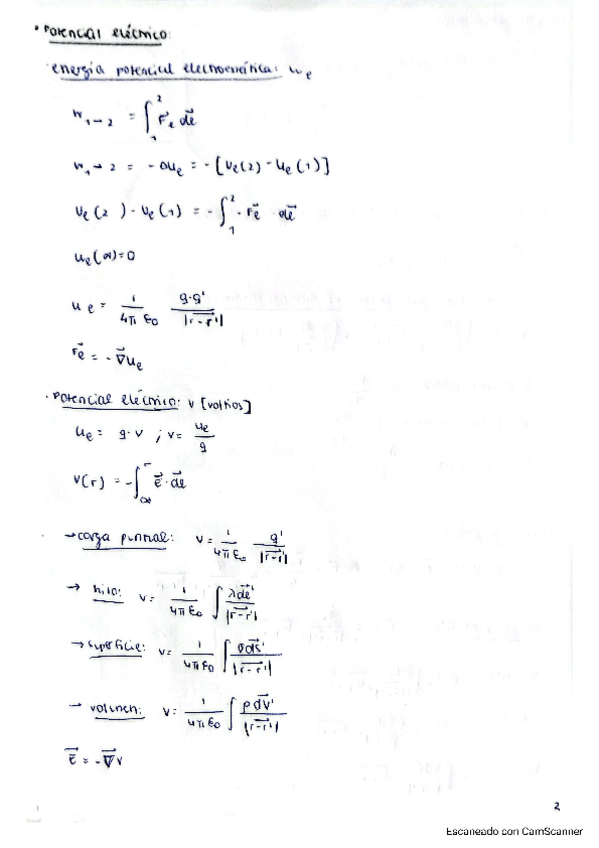 • Potencial eléctrico:
· energía potencial electroestática: Ue
W₁→₂ = ∫₁² F⃗e d⃗e
W₁→₂ = -ΔUe = -[Ue(2) - Ue(1)]
Ue(2) - Ue(1) = -∫₁² · F⃗e d⃗e
Ue(∞)=0
Ue = 1/4πε₀ q·q'/|r⃗-r⃗'|
F⃗e = -∇⃗Ue
· Potencial eléctrico: V [voltios]
Ue = q·V ; V= Ue/q
V(r) = -∫∞ʳ E⃗·d⃗e
→carga puntual: V= 1/4πε₀ q'/|r⃗-r⃗'|
→ hilo: V= 1/4πε₀ ∫ λd⃗e'/|r⃗-r⃗'|
→superficie: V= 1/4πε₀ ∫ σd⃗s'/|r⃗-r⃗'|
→ volumen: V= 1/4πε₀ ∫ ρd⃗V'/|r⃗-r⃗'|
E⃗ = -∇⃗V
2
Escaneado con CamScanner